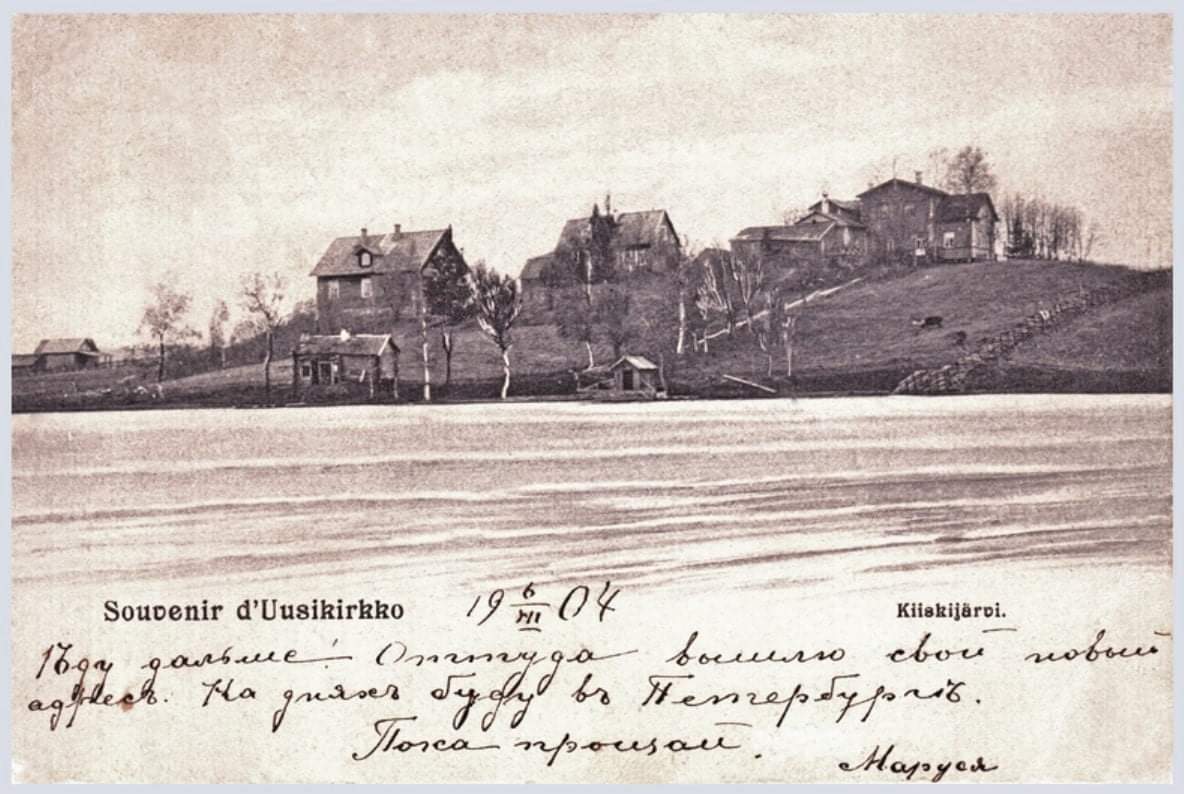 Souvenir d'Uusikirkko
19 6/VII 04
Kiiskijärvi.
Ѣду дальше! Оттуда вышлю свой новый
адресъ. На дняхъ буду въ Петербургѣ.
Пока прощай.
Маруся